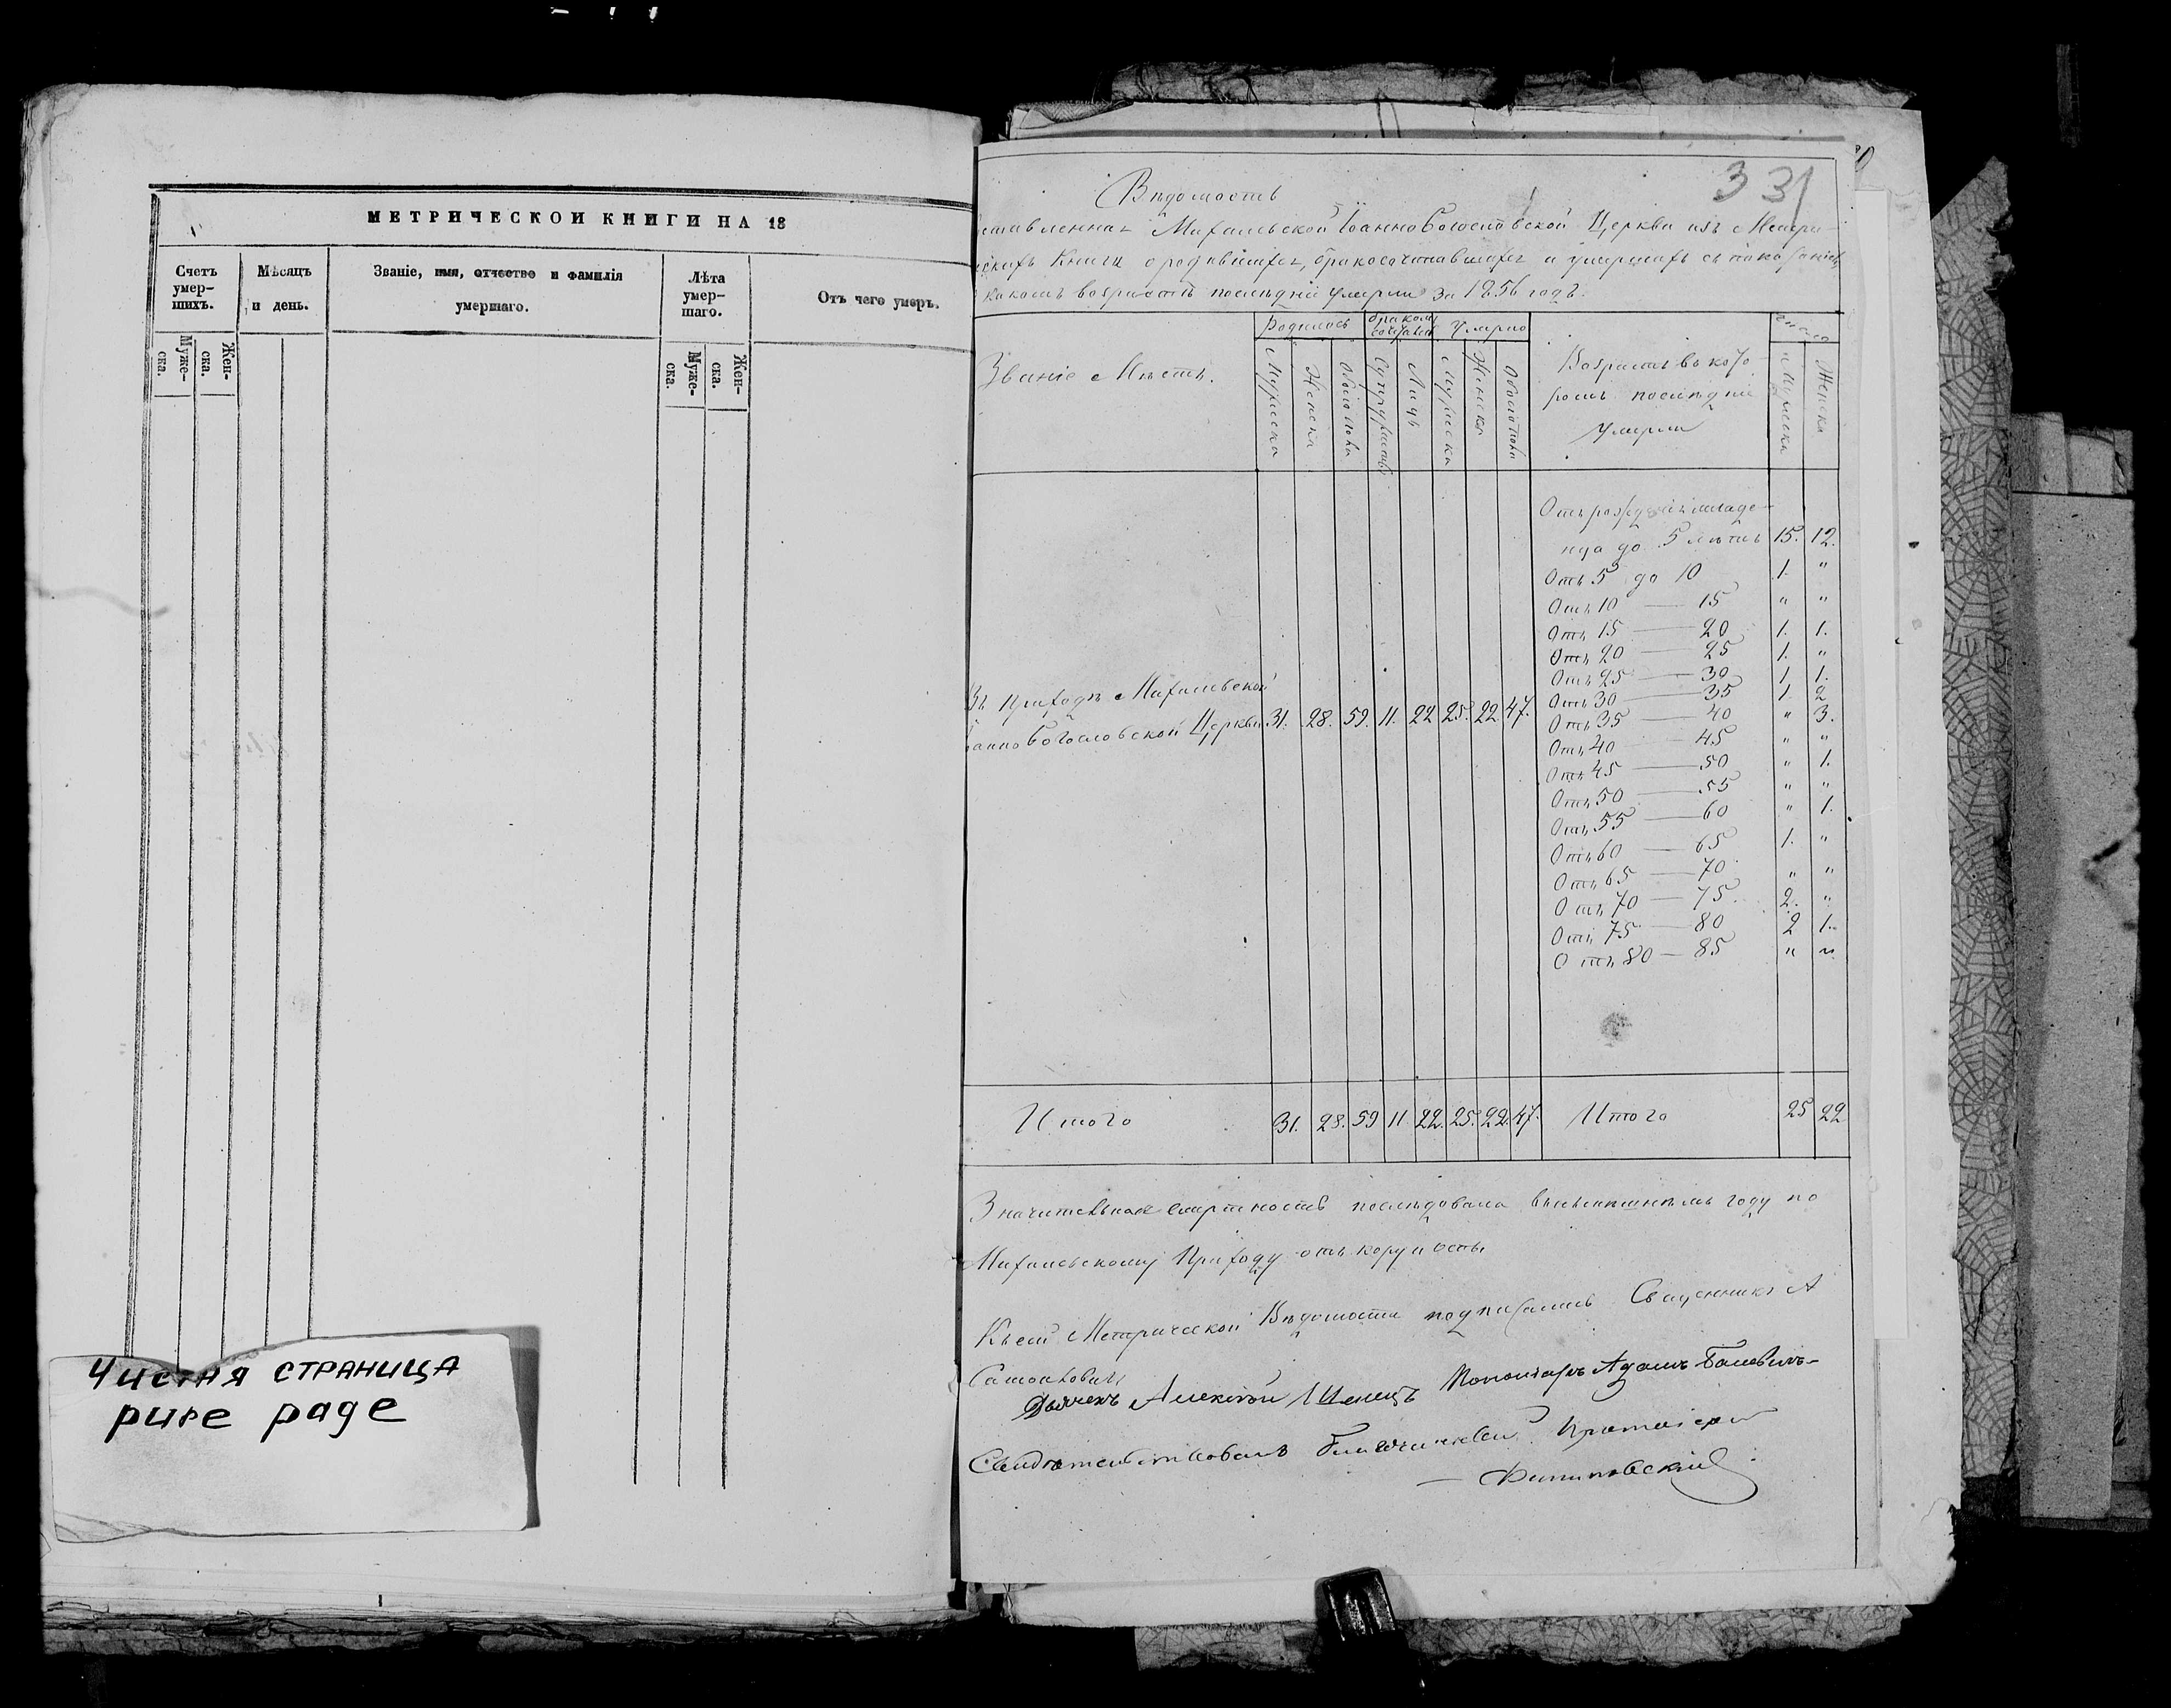 МЕТРИЧЕСКОЙ КНИГИ НА 18
Счетъ умер-шихъ.
Мѣсяцъ и день.
Званіе, имя, отчество и фамилія умершаго.
Лѣта умер-шаго.
Отъ чего умеръ.
Муже-ска.
Жен-ска.
Муже-ска.
Жен-ска.
Чистая страница
pure page
331
Вѣдомость
Іоанно Богословской Церкви изъ Метри-
Книги о родившихся, бракосочетавшихся и умершихъ съ показаніемъ
какомъ возрастѣ послѣдніе умерли за 1856 годъ.
Званіе Мѣстъ.
Родилось
Умерло
Число
Мужеска
Женска
Обоего пола
Супружествъ
Лицъ
Мужеска
Женска
Обоего пола
Возрастъ въ кото-
ромъ послѣдніе
умерли
Мужеска
Женска
Отъ рожденія младе-
нца до 5 лѣтъ 15. 12.
Отъ 5 до 10 1. "
Отъ 10 — 15 " "
Отъ 15 — 20 1. 1.
Отъ 20 — 25 1. "
Отъ 25 — 30 1 1.
Отъ 30 — 35 1. 2
Отъ 35 — 40 " 3.
Отъ 40 — 45 " "
Отъ 45 — 50 " 1.
Отъ 50 — 55 " "
Отъ 55 — 60 " 1.
Отъ 60 — 65 1. "
Отъ 65 — 70 " "
Отъ 70 — 75 2. "
Отъ 75 — 80 2 1.
Отъ 80 — 85 " "
Въ Приходѣ
Богословской Церкви 31. 28. 59. 11. 22 25. 22. 47.
Итого 31. 28. 59 11 22. 25. 22. 47. Итого 25 22
Значительная смертность послѣдовала въ семъ году по
Приходу отъ кору и оспы
Къ сей Метрической Вѣдомости подписались Священникъ А
Дьячекъ Алексѣй Пономарь Адамъ
Свидѣтельствовалъ Благочинный Протоіерей